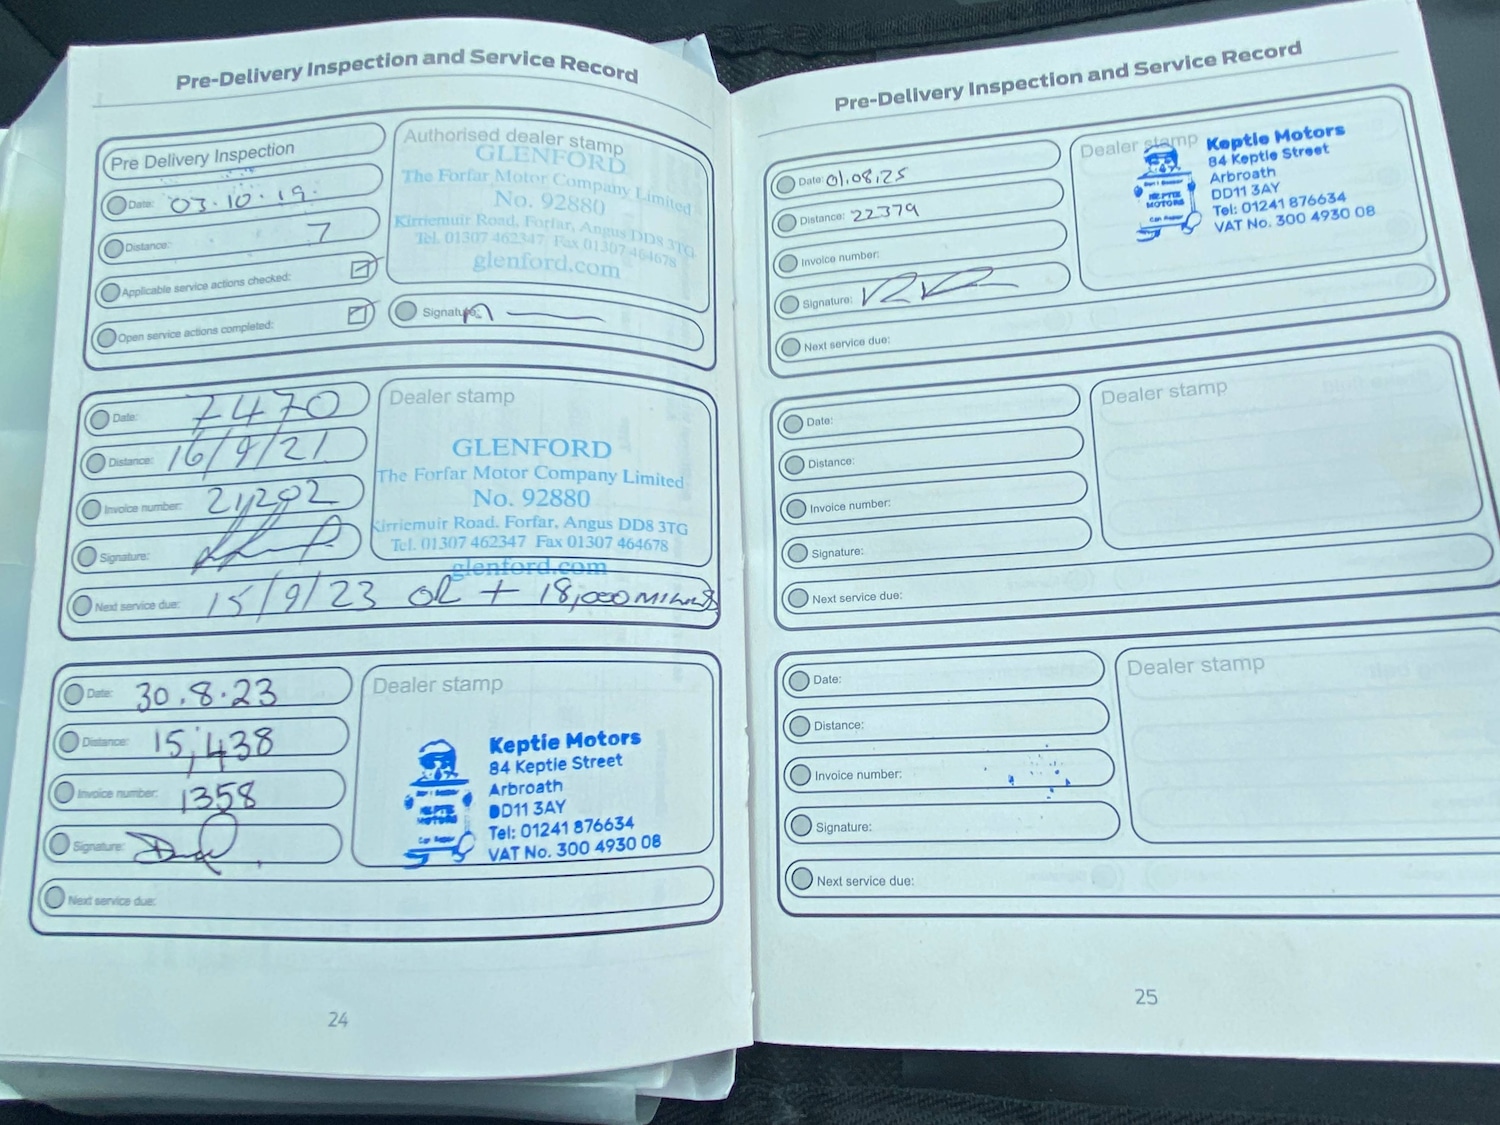 Pre-Delivery Inspection and Service Record
Pre Delivery Inspection
Date: 03.10.19.
Distance: 7
Applicable service actions checked:
Open service actions completed:
Authorised dealer stamp
GLENFORD
The Forfar Motor Company Limited
No. 92880
Kirriemuir Road, Forfar, Angus DD8 3TG
Tel. 01307 462347 Fax 01307 464678
glenford.com
Signature:
Date: 7470
Distance: 16/9/21
Invoice number: 21,202
Signature:
Dealer stamp
GLENFORD
The Forfar Motor Company Limited
No. 92880
Kirriemuir Road. Forfar, Angus DD8 3TG
Tel. 01307 462347 Fax 01307 464678
glenford.com
Next service due: 15/9/23 OR + 18,000
Date: 30.8.23
Distance: 15,438
Invoice number: 1358
Signature:
Dealer stamp
KEPTIE
MOTORS
Keptie Motors
84 Keptie Street
Arbroath
DD11 3AY
Tel: 01241 876634
VAT No. 300 4930 08
Next service due:
24
Pre-Delivery Inspection and Service Record
Date: 01.08.25
Distance: 22379
Invoice number:
Signature:
Next service due:
Dealer stamp
KEPTIE
MOTORS
Keptie Motors
84 Keptie Street
Arbroath
DD11 3AY
Tel: 01241 876634
VAT No. 300 4930 08
Date:
Distance:
Invoice number:
Signature:
Next service due:
Dealer stamp
Date:
Distance:
Invoice number:
Signature:
Next service due:
Dealer stamp
25